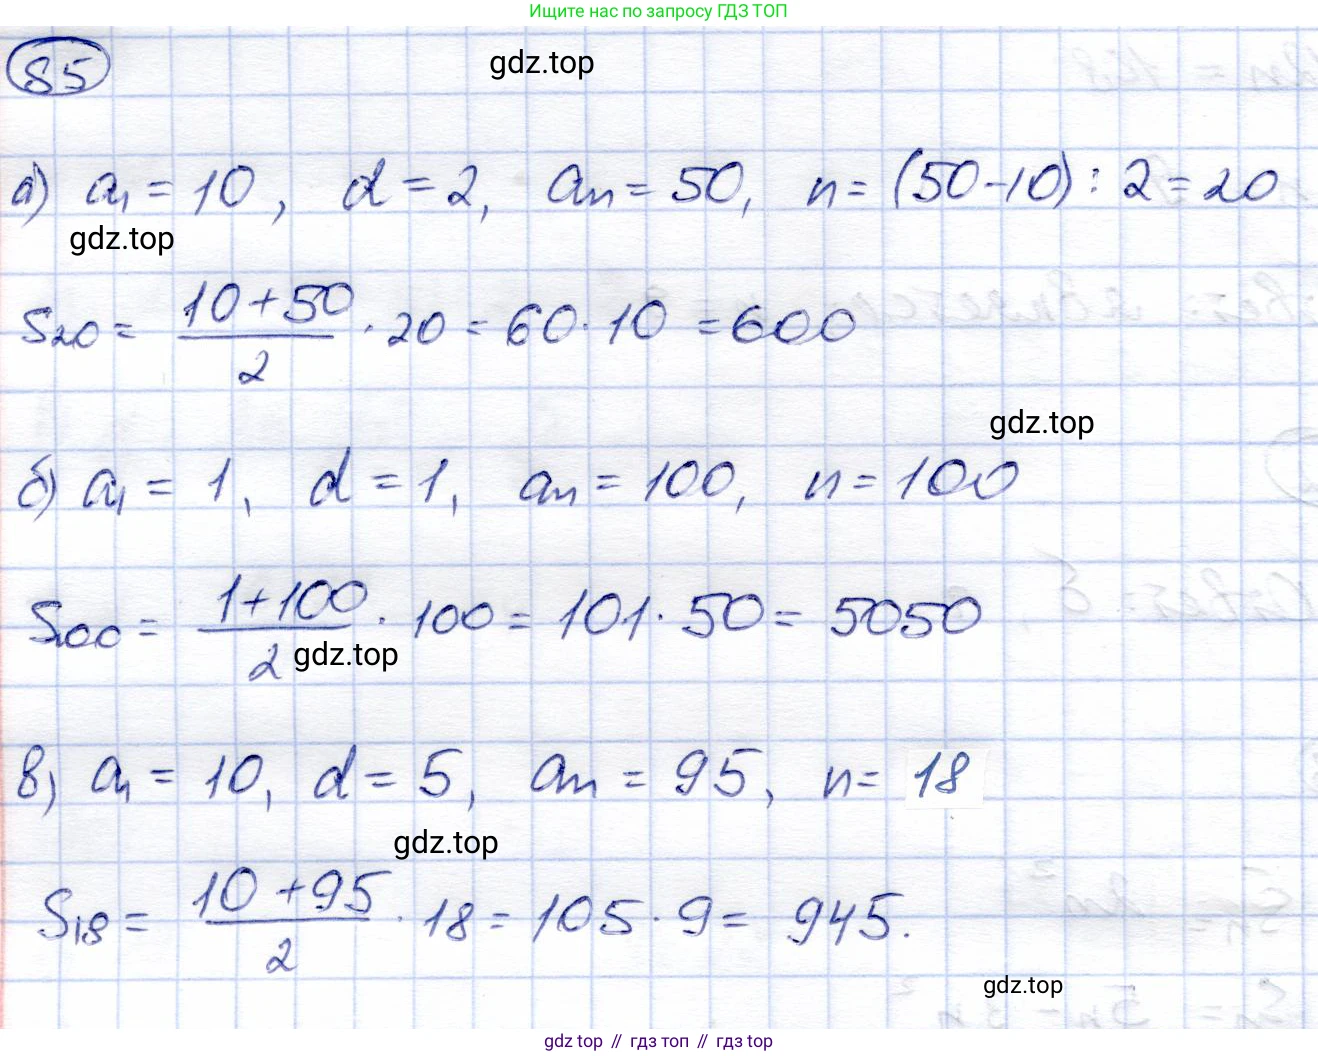 Ищите нас по запросу ГДЗ ТОП
85
gdz.top
а) a₁ = 10, d = 2, aₙ = 50, n = (50-10) : 2 = 20
gdz.top
S₂₀ = (10+50)/2 · 20 = 60 · 10 = 600
gdz.top
б) a₁ = 1, d = 1, aₙ = 100, n = 100
S₁₀₀ = (1+100)/2 · 100 = 101 · 50 = 5050
gdz.top
в) a₁ = 10, d = 5, aₙ = 95, n = 18
gdz.top
S₁₈ = (10+95)/2 · 18 = 105 · 9 = 945.
gdz.top
gdz top // гдз топ // гдз top